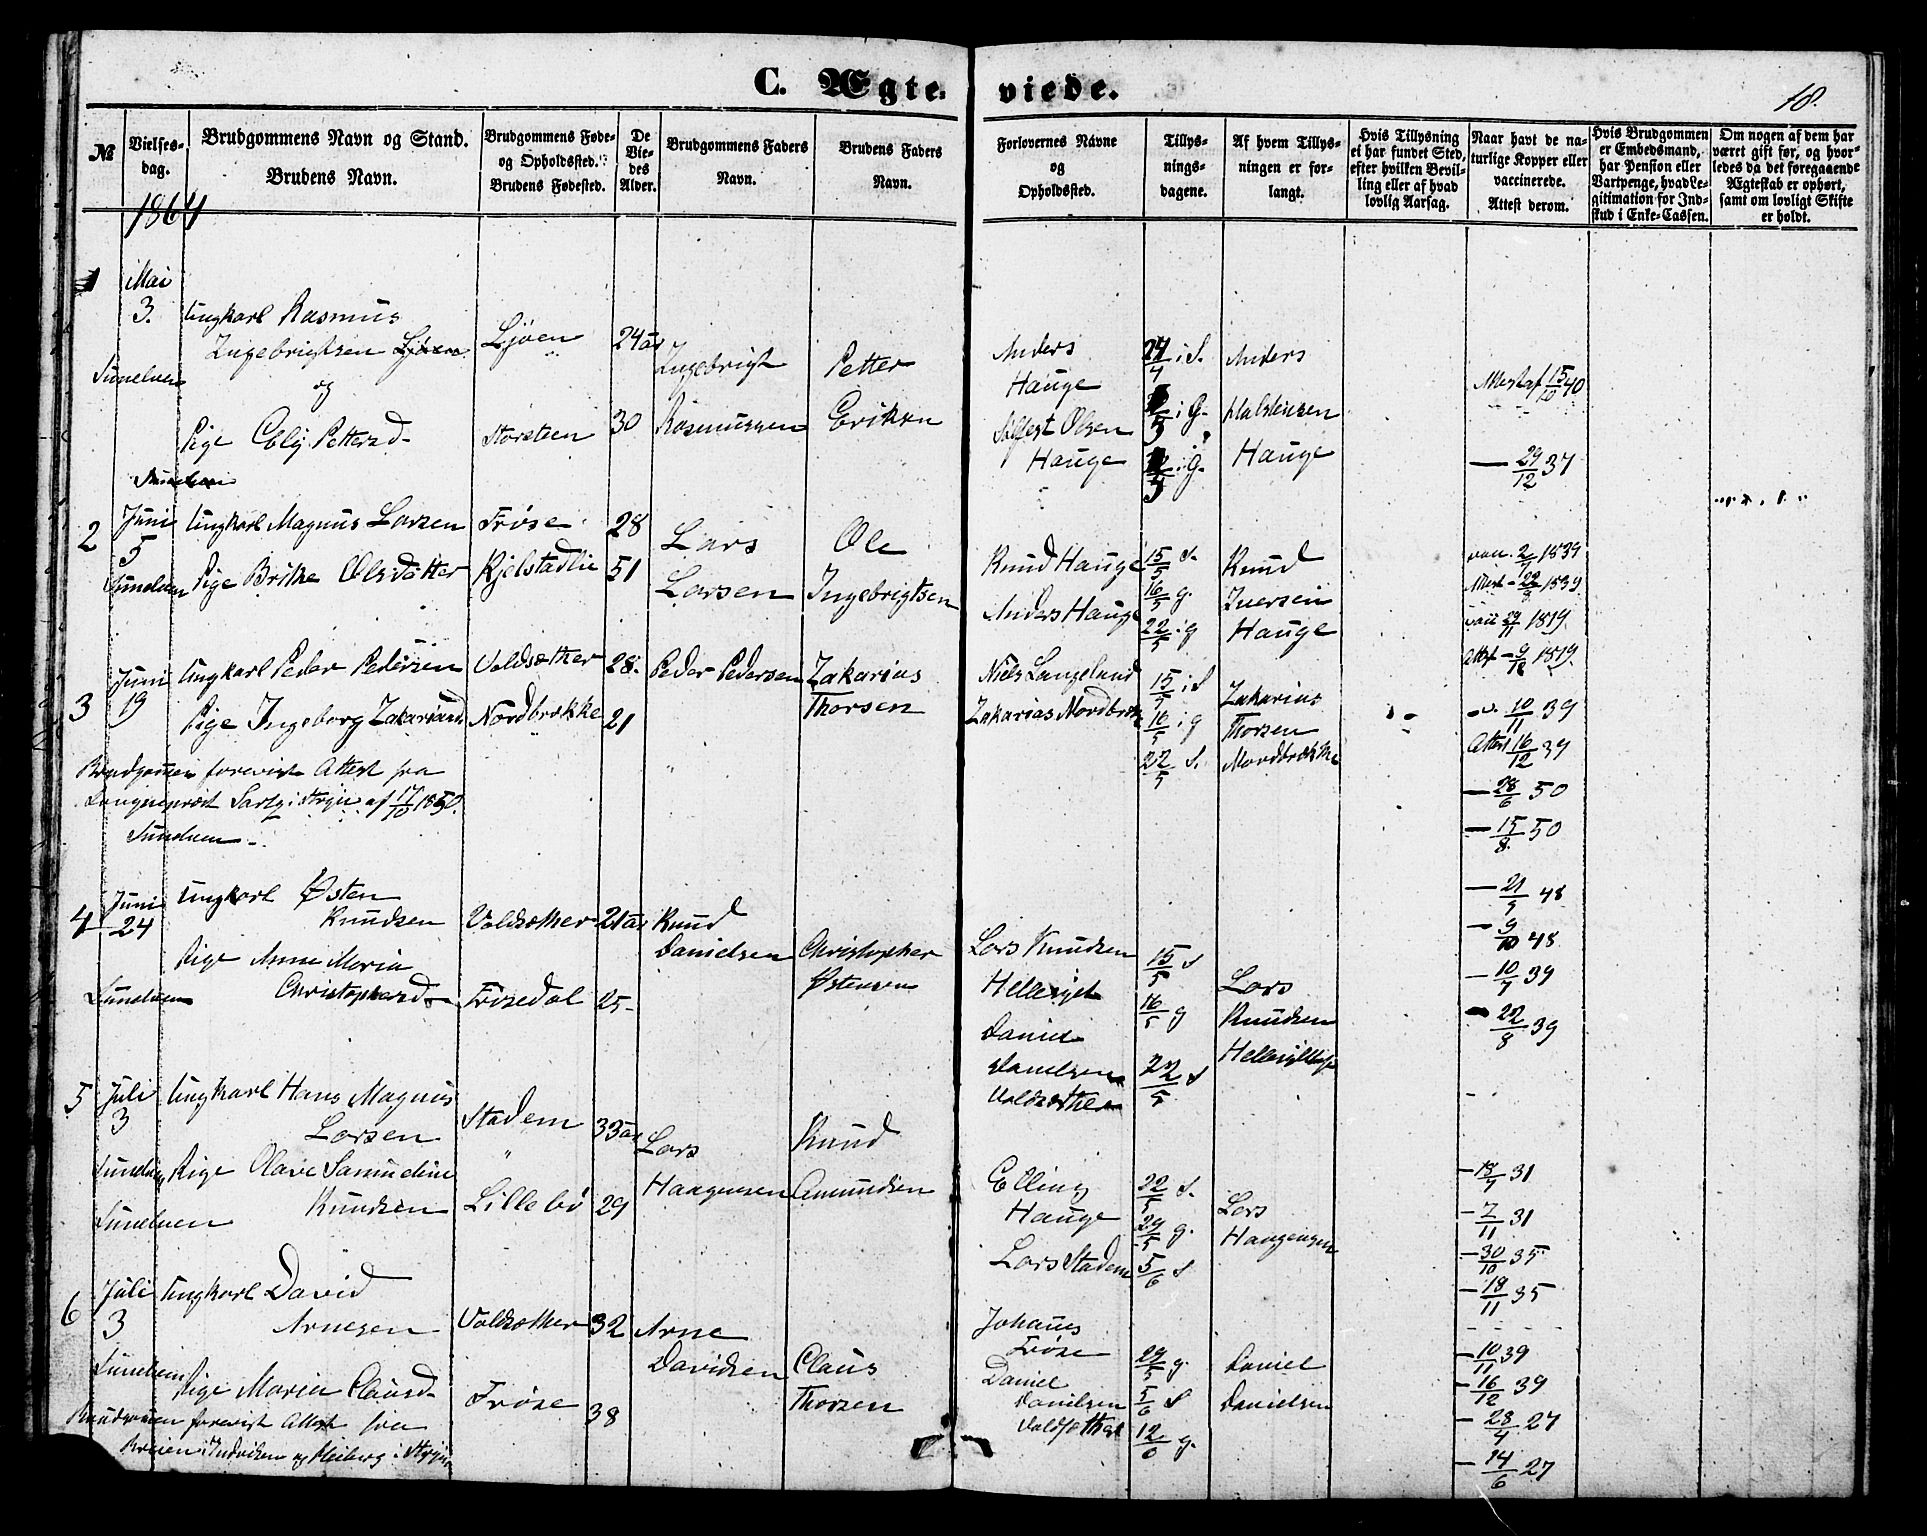 C. Ægte-viede.
18.
№
Vielses-dag.
Brudgommens Navn og Stand.
Brudens Navn.
Brudgommens Føde- og Opholdssted.
Brudens Fødested.
De Viedes Alder.
Brudgommens Faders Navn.
Brudens Faders Navn.
Forlovernes Navne og Opholdssted.
Tillysningsdagene.
Af hvem Tillysningen er forlangt.
Hvis Tillysning ei har fundet Sted, efter hvilken Bevilling eller af hvad lovlig Aarsag.
Naar havt de naturlige Kopper eller vaccinerede. Attest derom.
Hvis Brudgommen er Embedsmand, har Pension eller Vartpenge, hvad Legitimation for Indskud i Enke-Cassen.
Om nogen af dem har været gift før, og hvorledes da det foregaaende Ægteskab er ophørt, samt om lovligt Skifte er holdt.
1864
1
Mai
3.
Ungkarl Rasmus
Ingebrigtsen Ljøen
Sunelven
og
Pige Pettersd.
Ljøen
Storsteen
24 aar
30
Ingebrigt
Rasmussen
Petter
Eriksen
Anders
Hauge
Olsen
Hauge
24/4 i S.
i G.
i G.
Anders
Hauge
15/10 40
29/12 37
2
Juni
5
Sunelven
Ungkarl Magnus Larsen
Pige Brithe Olsdatter
Frøse
Kjelstadlie
28
51
Lars
Larsen
Ole
Ingebrigtsen
Knud Hauge
Anders Hauge
15/5 S.
16/5 g.
22/5 i g
Knud
Iversen
Hauge
1839
1839
1819
1819
3
Juni
19
Ungkarl Peder Pedersen
Pige Ingeborg Zakariasd
Voldsæther
Nordbrække
28.
21
Peder Pedersen
Zakarias
Thorsen
Niels Langeland
Zakarias Nordbræk
15/5 i S
16/5 i g
22/5 S.
Zakarias
Thorsen
Nordbrække
10/11 39
Attest 16/12 39
28/6 50
15/8 50
Brudgommen forevist Attest fra
af 17/10 1850.
Sunelven
4
Juni
24
Ungkarl Østen
Knudsen
Pige Anne Maria
Christophersd
Sunelven
Voldsæther
Frøsedal
21 aar
25
Knud
Danielsen
Christopher
Østensen
Lars Knudsen
Hellesylt
Daniel
Danielsen
Voldsæther
15/5 S
16/5 g
22/5 S
Lars
Knudsen
21/5 48
9/10 48
10/7 39
22/8 39
5
Juli
3
Ungkarl Hans Magnus
Larsen
Pige Olave
Knudsen
Sunelven
Stadem
Lillebø
33 aar
29
Lars
Knud
Amundsen
Elling
Hauge
Lars Stadem
22/5 S.
29/5 g.
5/6 S
Lars
18/7 31
7/11 31
30/10 35
18/11 35
6
Juli
3
Sunelven
Ungkarl David
Arnesen
Pige Maria Clausd.
Voldsæther
Frøse
32
38
Arne
Davidsen
Claus
Thorsen
Johannes
Frøse
Daniel
Danielsen
Voldsæther
29/5 g.
5/6 S
12/6 g.
Daniel
Danielsen
10/11 39
16/12 39
28/4 27
14/6 27
forevist Attest fra